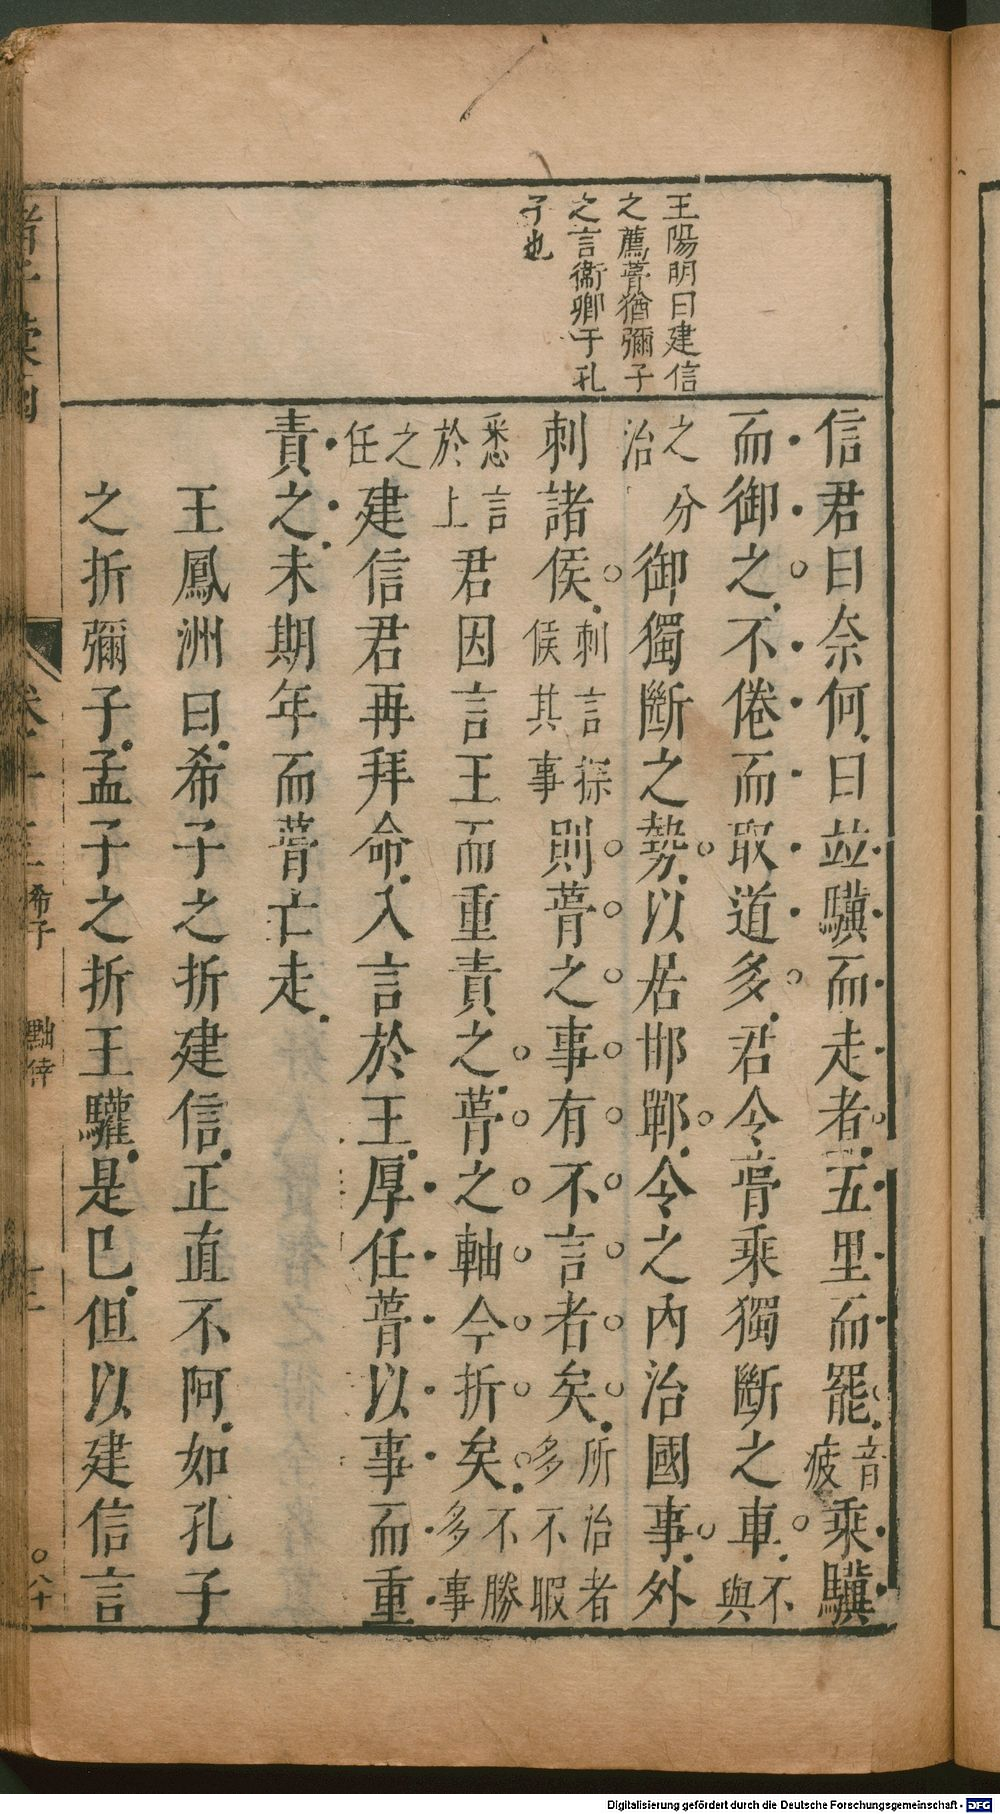 王陽明曰建信
之薦葺猶彌子
之言衞卿于孔
子也
信君曰奈何曰並驥而走者五里而罷音疲乘驥
而御之不倦而取道多君令葺乘獨斷之車不與
之分治御獨斷之勢以居邯鄲令之內治國事外
刺諸侯刺言探侯其事則葺之事有不言者矣所治者多不暇
悉言於上君因言王而重責之葺之軸今折矣不勝多事
之任建信君再拜命入言於王厚任葺以事而重
責之未期年而葺亡走
王鳳洲曰希子之折建信正直不阿如孔子
之折彌子孟子之折王驩是已但以建信言
希子
黜倖
〇八十
Digitalisierung gefördert durch die Deutsche Forschungsgemeinschaft - DFG